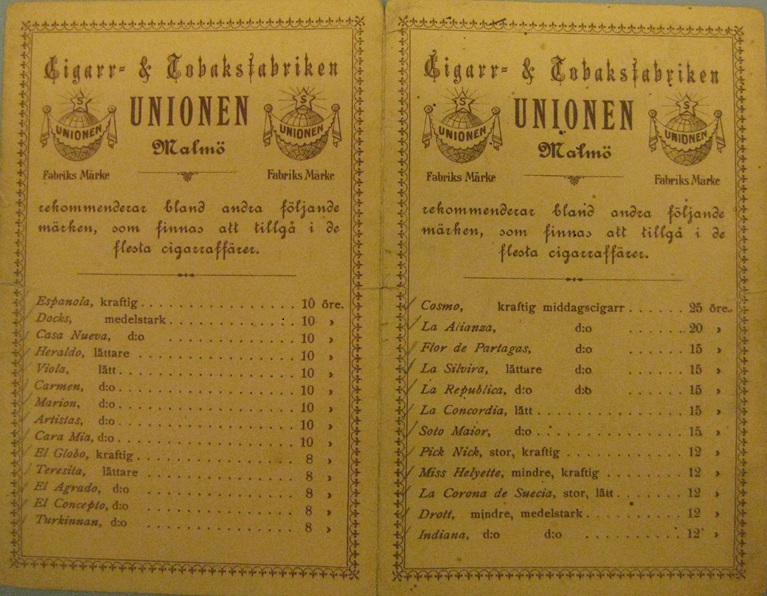 Cigarr- & Tobaksfabriken
UNIONEN
Malmö
S
UNIONEN
Fabriks Märke
S
UNIONEN
Fabriks Märke
rekommenderar bland andra följande
märken, som finnas att tillgå i de
flesta cigarraffärer.
Espanola, kraftig . . . . . . . . . . . . . . 10 öre.
Docks, medelstark . . . . . . . . . . . . 10 »
Casa Nueva, d:o . . . . . . . . . . . . 10 »
Heraldo, lättare . . . . . . . . . . . . 10 »
Viola, lätt . . . . . . . . . . . . . . 10 »
Carmen, d:o . . . . . . . . . . . . . . 10 »
Marion, d:o . . . . . . . . . . . . . . 10 »
Artistas, d:o . . . . . . . . . . . . . . 10 »
Cara Mia, d:o . . . . . . . . . . . . . . 10 »
El Globo, kraftig . . . . . . . . . . . . 8 »
Teresita, lättare . . . . . . . . . . . . 8 »
El Agrado, d:o . . . . . . . . . . . . 8 »
El Concepto, d:o . . . . . . . . . . . . 8 »
Turkinnan, d:o . . . . . . . . . . . . 8 »
Cigarr- & Tobaksfabriken
UNIONEN
Malmö
S
UNIONEN
Fabriks Märke
S
UNIONEN
Fabriks Märke
rekommenderar bland andra följande
märken, som finnas att tillgå i de
flesta cigarraffärer.
Cosmo, kraftig middagscigarr . . . . . . 25 öre.
La Alianza, d:o . . . . . . 20 »
Flor de Partagas, d:o . . . . . . 15 »
La Silvira, lättare d:o . . . . . . 15 »
La Republica, d:o d:o . . . . . . 15 »
La Concordia, lätt . . . . . . . . . . . . 15 »
Soto Maior, d:o . . . . . . . . . . . . 15 »
Pick Nick, stor, kraftig . . . . . . . . 12 »
Miss Helyette, mindre, kraftig . . . . . . 12 »
La Corona de Suecia, stor, lätt . . . . . . 12 »
Drott, mindre, medelstark . . . . . . . . 12 »
Indiana, d:o d:o . . . . . . . . 12 »